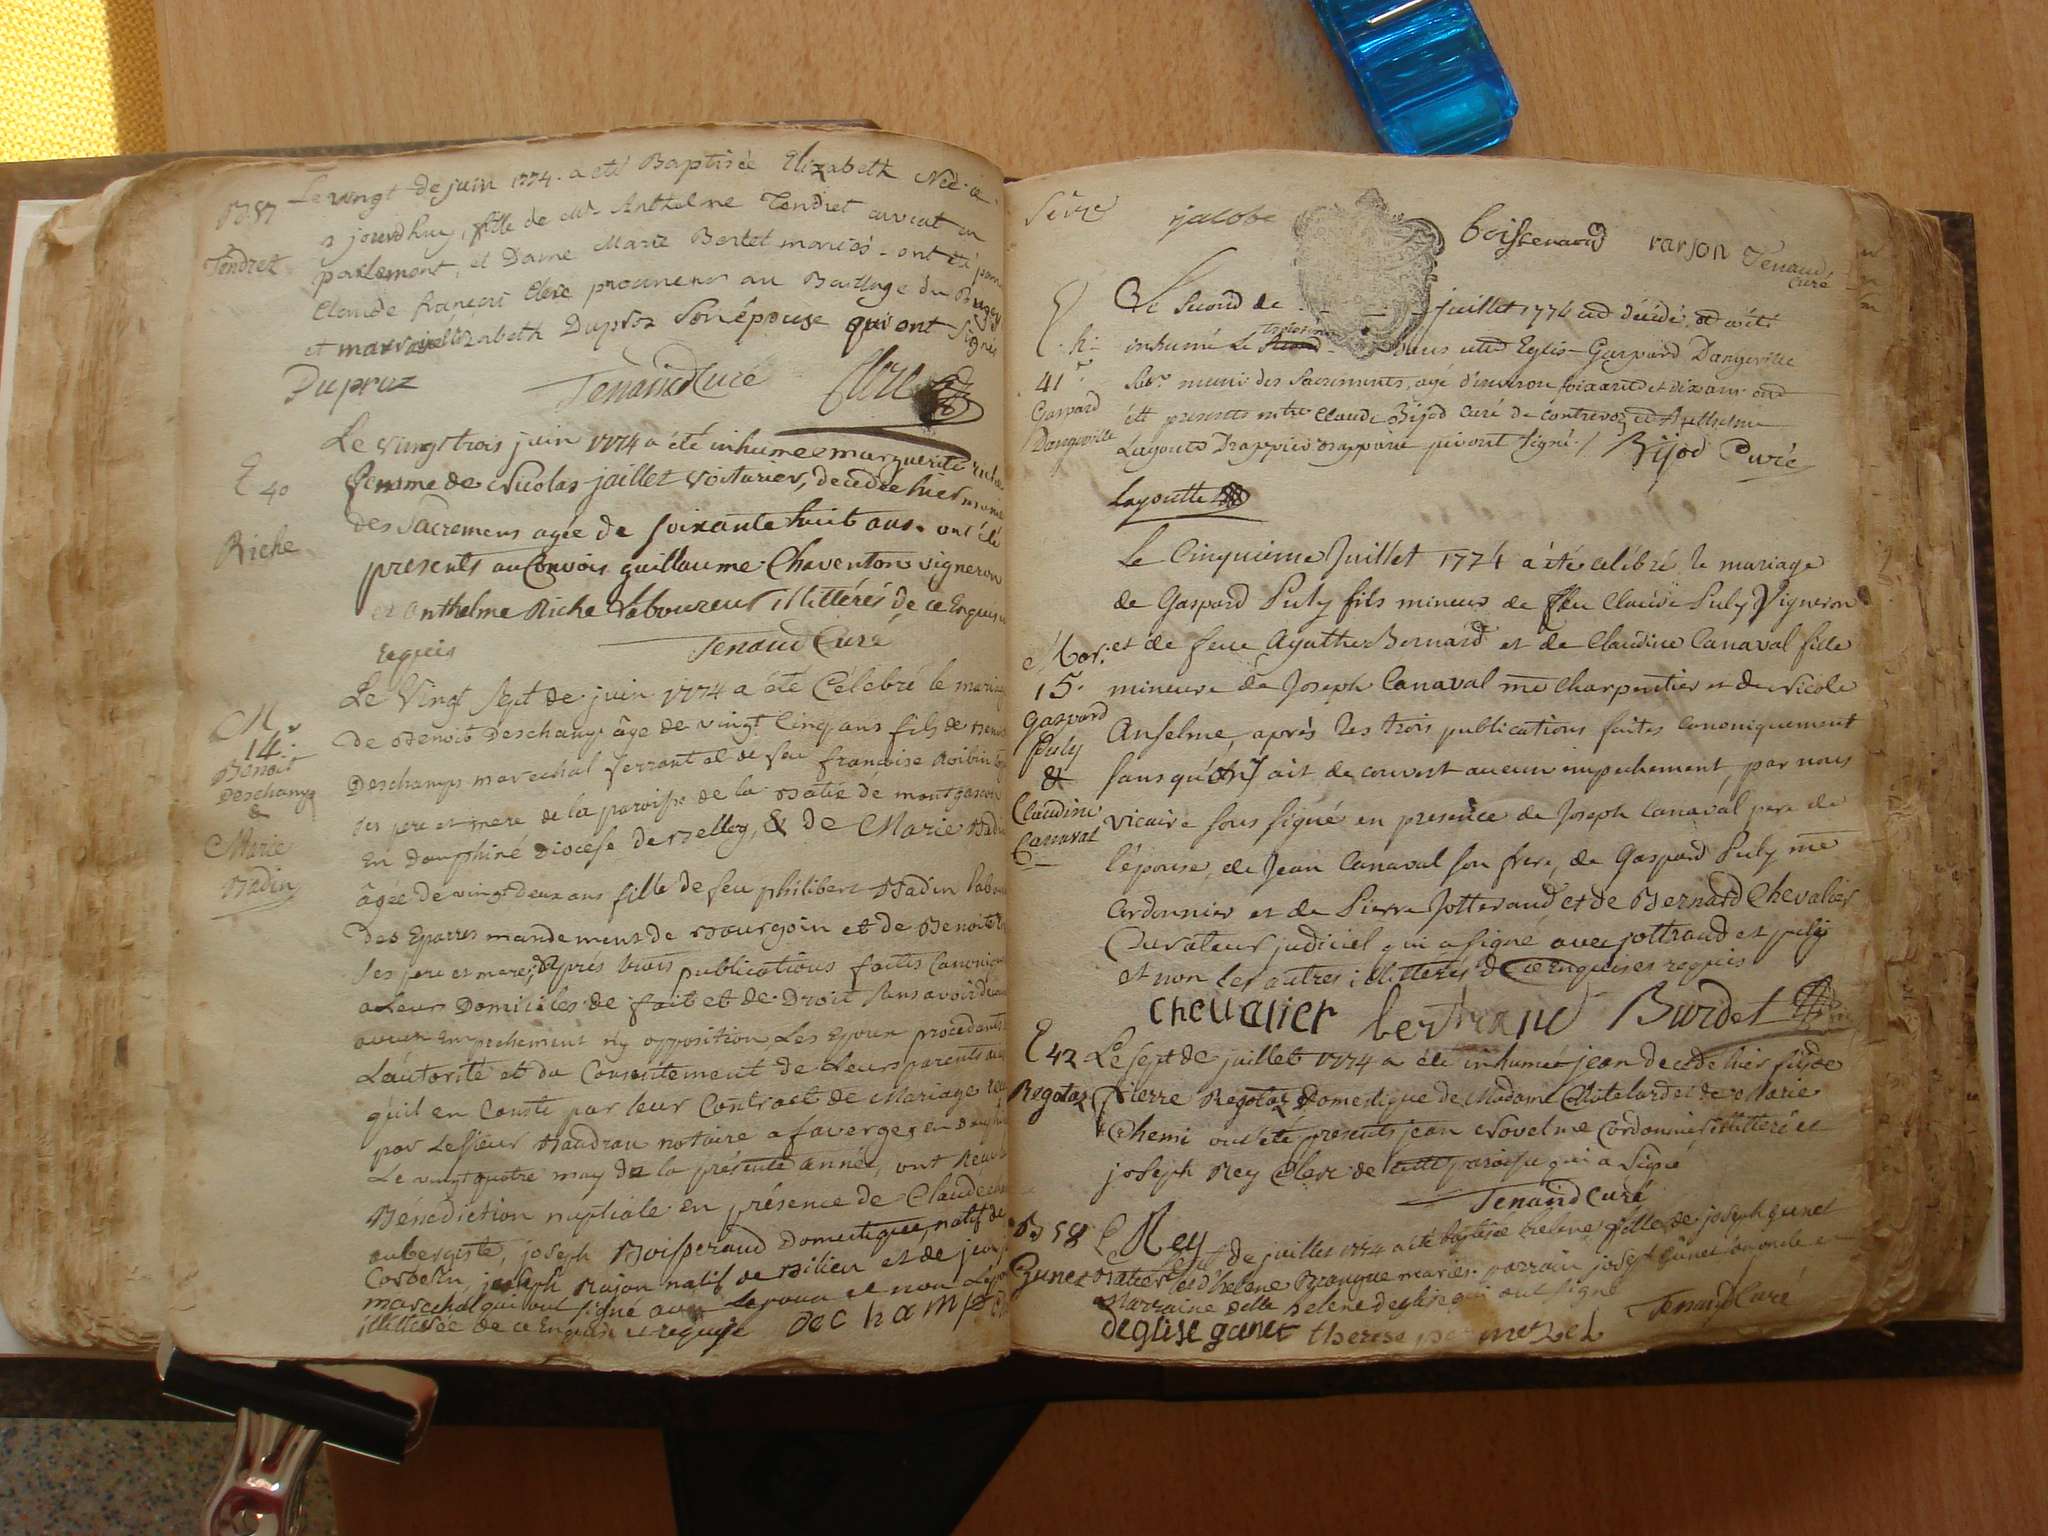 B 57
Tendret
Le vingt de juin 1774. a eté Baptisée Elizabeth Née
jourdhuy, fille de Mr Anthelme Tendret avocat au
parlement, et Dame Marie Bertet mariés. ont été
Claude françois Clerc procureur au Bailliage du Bugey
et marraine Elizabeth Dupraz Son épouse qui ont signés
Dupraz Tenand Curé Clerc
E 40
Riche
Le Vingt trois juin 1774 a été inhumée marguerite
femme de Nicolas jaillet Voiturier, decedée hier munie
des Sacremens agée de soixante huit ans. ont été
presents au Convois guillaume Chaventon vigneron
et Anthelme Riche Laboureur illittérés de ce Enquis
requis Tenand Curé
M.r
14.
Benoit
Deschamps
&
Marie
Badin
Le Vingt Sept de juin 1774 a été Célébré le mariage
de Benoit Deschamps âge de vingt Cinq ans fils de Benoit
Deschamps marechal ferrant et de feu françoise
ses pere et mere de la paroisse de la Batie de montgascon
En Dauphiné Diocese de Belley, & de Marie Badin
âgée de vingt deux ans fille de feu philibert Badin
des Eparres mandement de Bourgoin et de Benoite
ses pere et mere; Après trois publications faites Canoniquement
a Leurs Domiciles de fait et de Droit Sans avoir
aucun Empechement ny opposition Les Epoux procedants
L'autorité et du Consentement de Leurs parents
qu'il en Conste par leur Contract de Mariage
par Le Sieur Baudran notaire a faverges en
Le vingt quatre may de la présente année, ont
Bénédiction nuptiale en présence de Claude
aubergiste, joseph Boisserand Domestique, natif de
Corbelin, joseph Rajon natif de Bilieu et de
marechal qui ont signé avec Lepoux et non
illittérée de ce Enquise et requise dechamp
jacobe boisserand rarjon Tenand
Curé
E
h.
41.e
Gaspard
Dangeville
Le Second de juillet 1774 est décédé, et a été
inhumé Le troisième dans cette Eglise Gaspard Dangeville
muni des Sacrements, agé d'environ soixante et dix ans ont
été presents mtre Claude Bijod Curé de Contrevoz et Anthelme
Lagoutte Drappier qui ont Signé / Bijod Curé
Lagoutte
Mar.
15.
Gaspard
Puly
&
Claudine
Canaval
Le Cinquième Juillet 1774 a été célébré le mariage
de Gaspard Puly fils mineur de feu Claude Puly Vigneron
et de feue Agathe Bernard et de Claudine Canaval fille
mineure de Joseph Canaval me Charpentier et de Nicole
Anselme, après les trois publications faites Canoniquement
sans qu'on y ait decouvert aucun empechement, par nous
vicaire sous signé en presence de Joseph Canaval pere de
l'épouse, de Jean Canaval son frere, de Gaspard Puly me
Cordonnier et de Pierre Jotteraud et de Bernard Chevalier
Curateur judiciel qui a signé avec jottraud et puly
et non les autres illittérés de ce Enquis et requis
chevalier bertrand Burdet
E 42
Regotaz
Le sept de juillet 1774 a été inhumé jean decedé hier fils de
pierre Regotaz Domestique de Madame Chatelard et de Marie
Chemi ont été presents jean Novelme Cordonnier illitteré et
joseph Rey Clerc de cette paroisse qui a Signé
Tenand Curé
Rey
B 58
Gunet
Le sept de juillet 1774 a été baptisée helene fille de joseph gunet
et d'helene Brangue mariés. parrain joseph Gunet
Marraine helene deglise qui ont signé
deglise gunet therese Tenand Curé